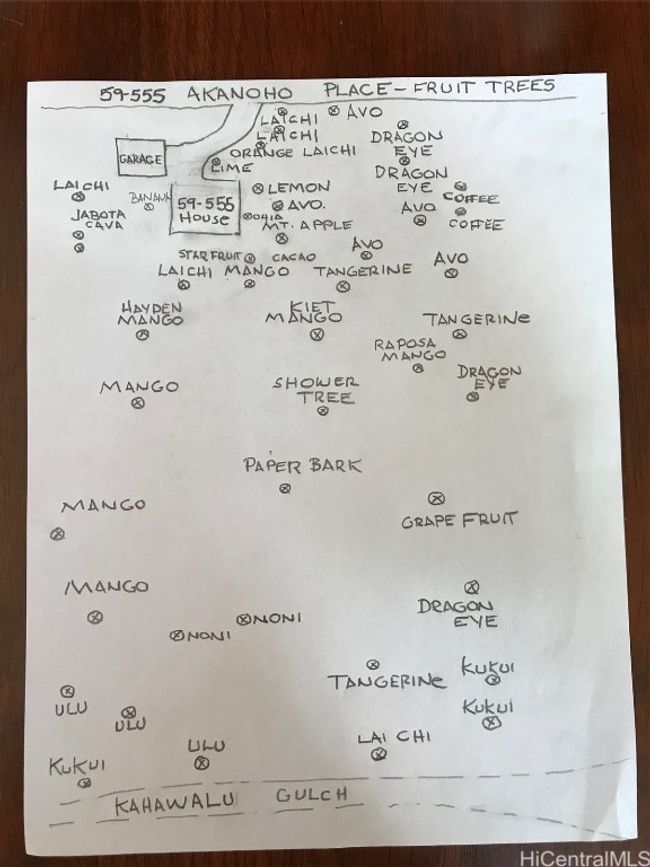 59-555 AKANOHO PLACE - FRUIT TREES
LAICHI
AVO
LAICHI
ORANGE LAICHI
DRAGON
EYE
GARAGE
LIME
DRAGON
EYE
LAICHI
BANANA
59-555
HOUSE
LEMON
AVO.
COFFEE
AVO
COFFEE
JABOTA
CAVA
OHIA
MT. APPLE
AVO
STAR FRUIT
CACAO
AVO
LAICHI
MANGO
TANGERINE
HAYDEN
MANGO
KIET
MANGO
TANGERINE
RAPOSA
MANGO
DRAGON
EYE
MANGO
SHOWER
TREE
PAPER BARK
MANGO
GRAPE FRUIT
MANGO
DRAGON
EYE
NONI
NONI
TANGERINE
KUKUI
ULU
ULU
KUKUI
ULU
LAI CHI
KUKUI
KAHAWALU GULCH
HiCentralMLS